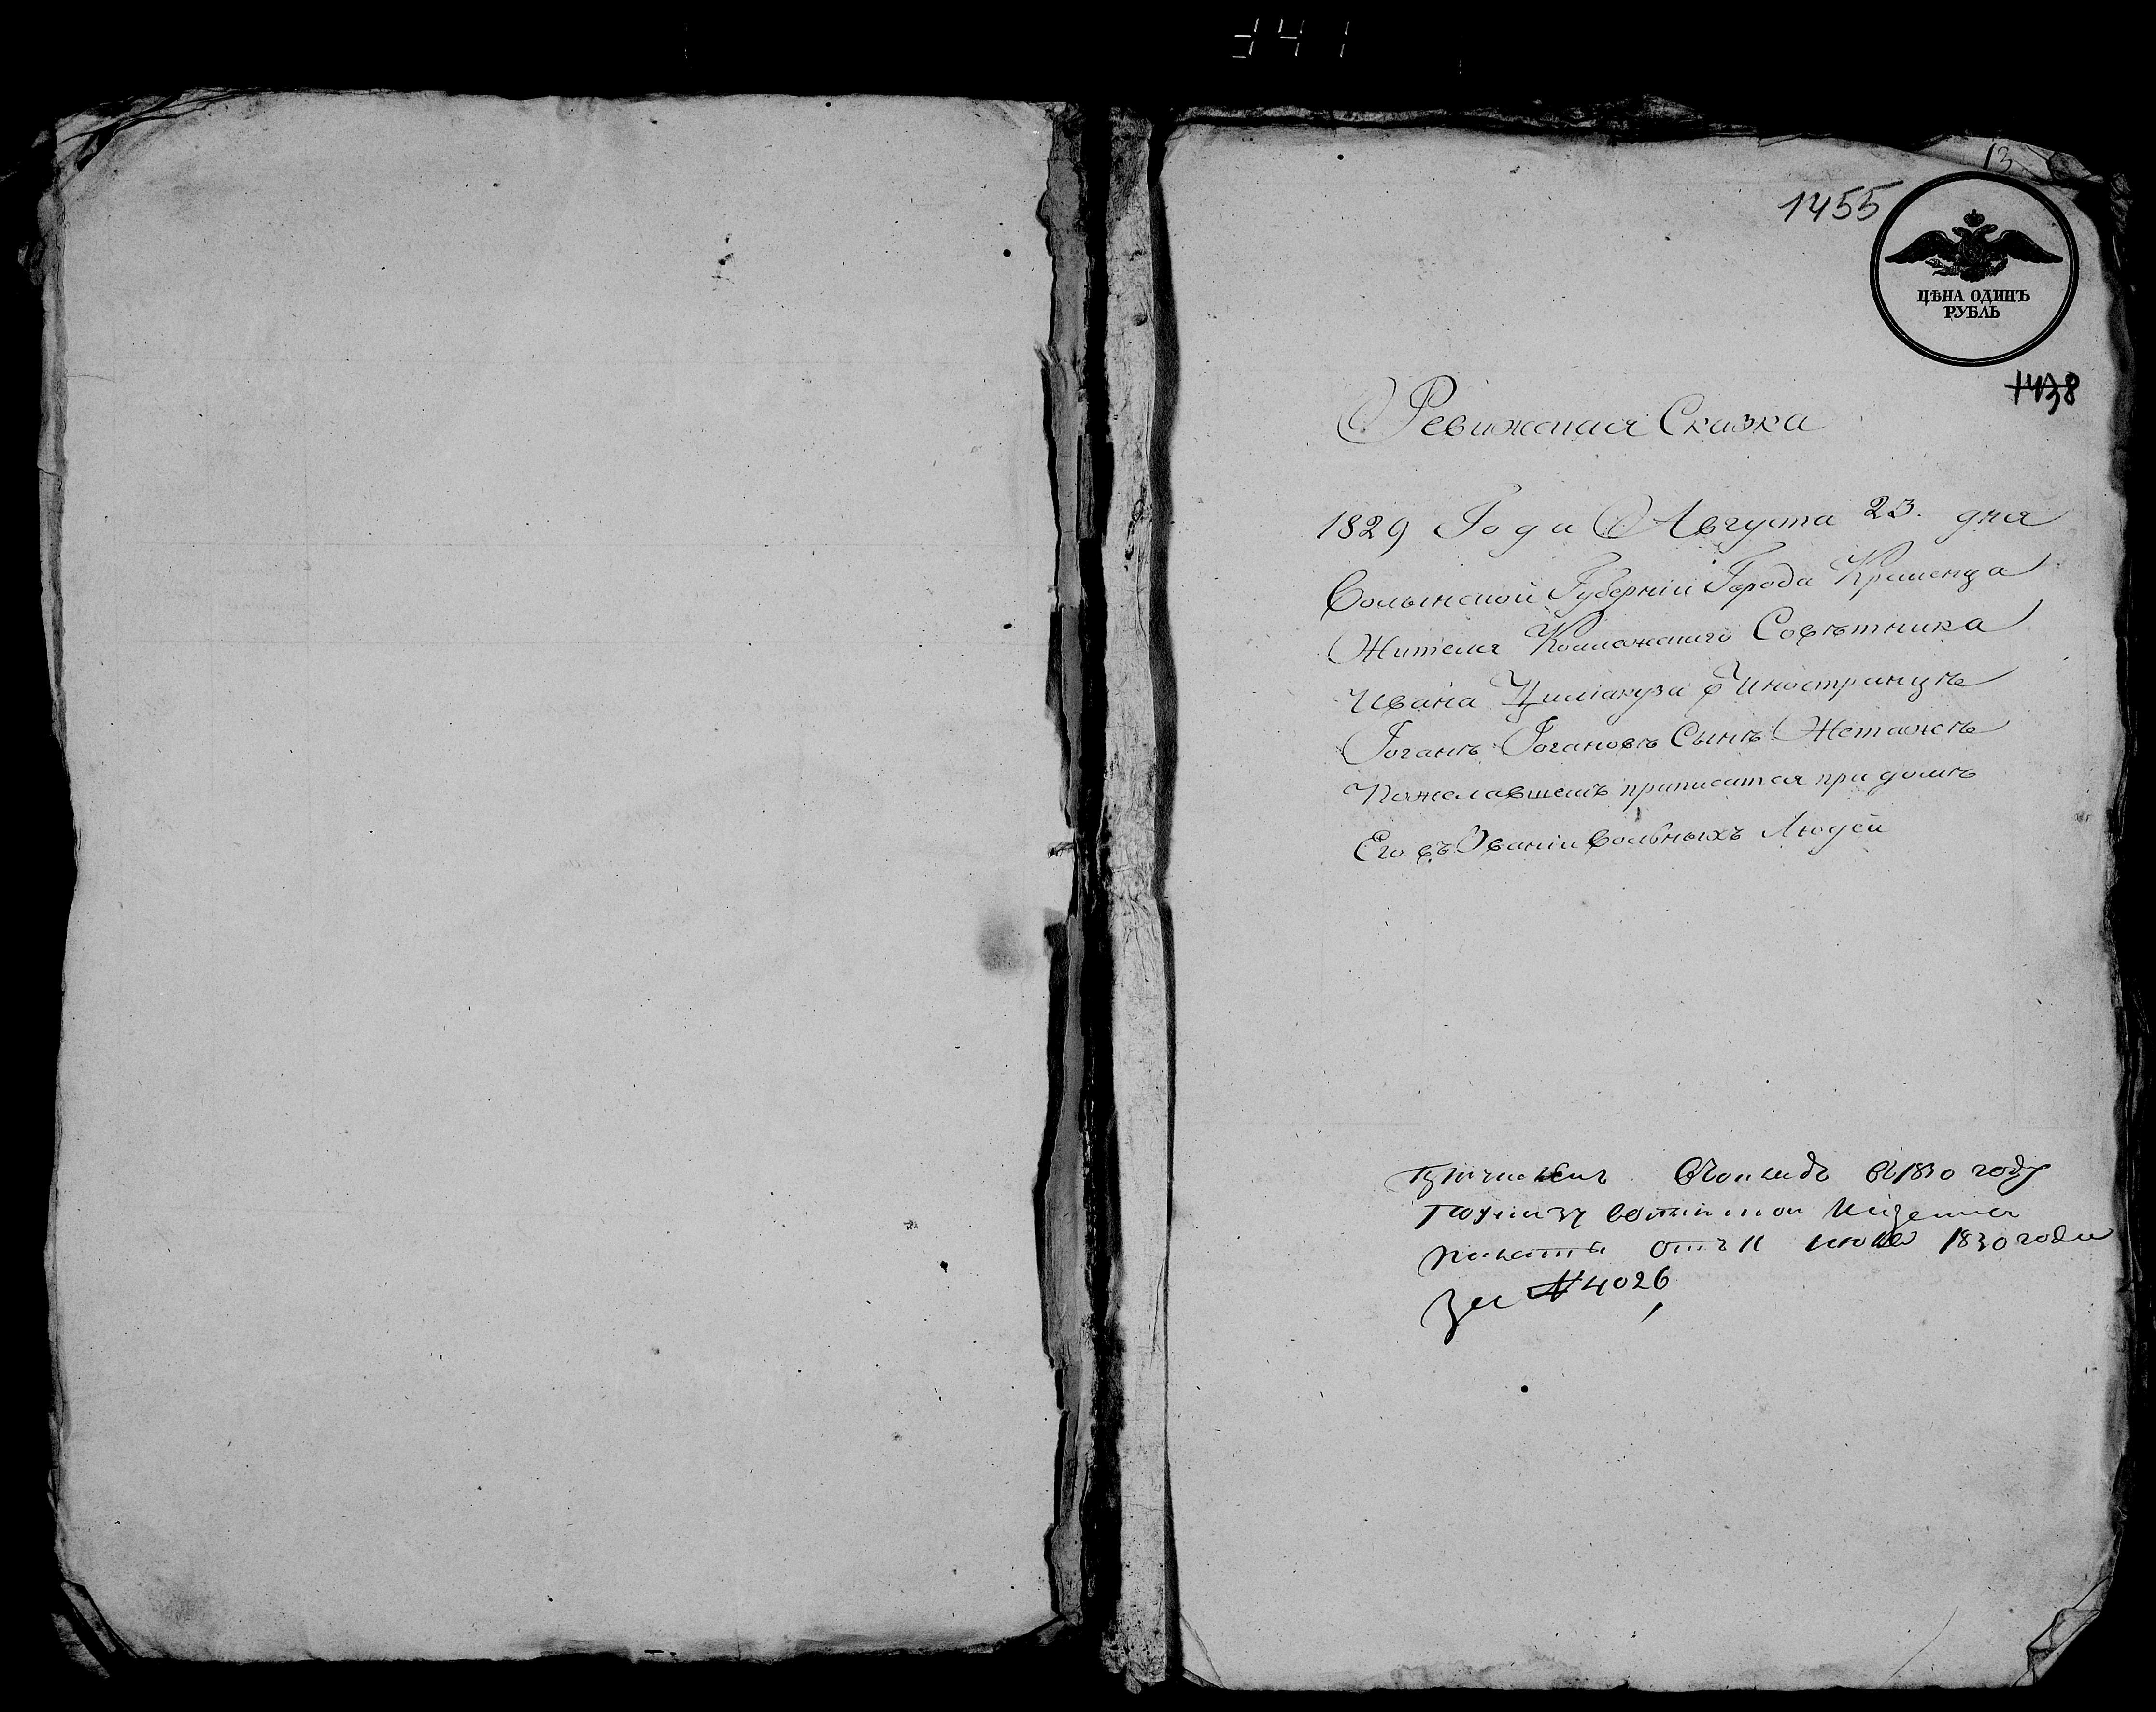 341
13
1455
ЦѢНА ОДИНЪ
РУБЛЬ
1438
Ревижская Сказка
1829 Года Августа 23. дня
Волынской Губерніи Города Кременца
Жителя Коллежскаго Совѣтника
Ивана о Иностранцѣ
Іоганъ Іогановъ Сынъ
Пожелавшемъ приписатся при домѣ
Его въ Званіи Вольныхъ Людей
Причисленъ в 1830 году
по указу волынской Казенной
палаты отъ 11 июля 1830 года
за № 4026